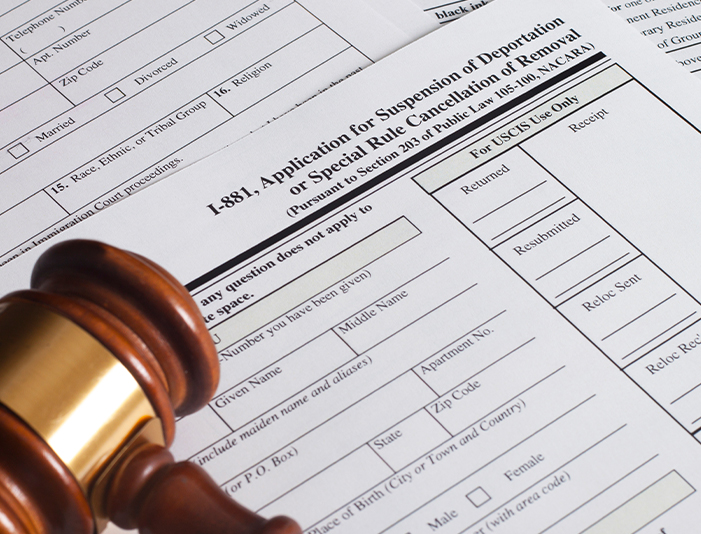 Telephone Number
( )
Apt. Number
Widowed
Zip Code
Divorced
Married
16. Religion
15. Race, Ethnic, or Tribal Group
in Immigration Court proceedings.
black ink
I-881, Application for Suspension of Deportation
or Special Rule Cancellation of Removal
(Pursuant to Section 203 of Public Law 105-100, NACARA)
For USCIS Use Only
Returned
Receipt
Resubmitted
Reloc Sent
Reloc Rec
any question does not apply to
space.
-Number you have been given)
Given Name
Middle Name
include maiden name and aliases)
Apartment No.
(or P.O. Box)
State
Zip Code
Place of Birth (City or Town and Country)
Male
Female
(with area code)